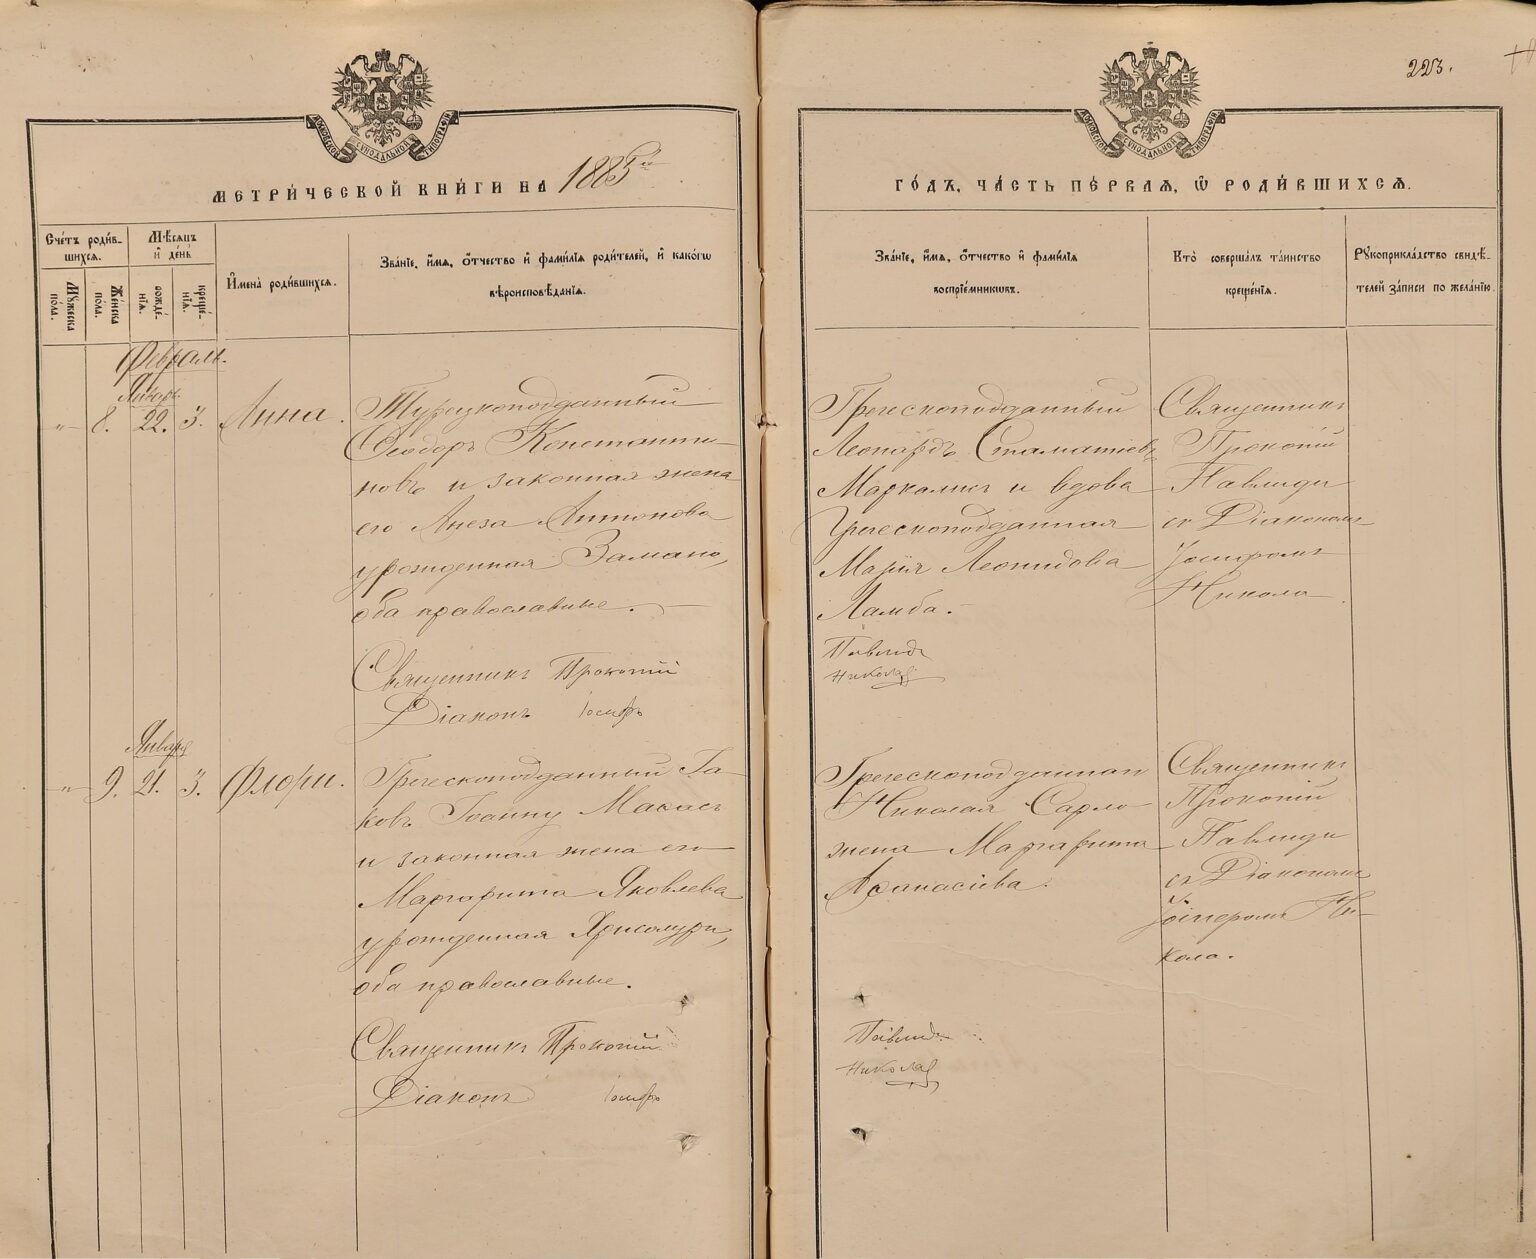 223.
МОСКОВСКОЙ СѴНОДАЛЬНОЙ ТИПОГРАФІИ
МОСКОВСКОЙ СѴНОДАЛЬНОЙ ТИПОГРАФІИ
МЕТРИ́ЧЕСКОЙ КНИ́ГИ НА 1885й
ГО́ДЪ, ЧА́СТЬ ПЕ́РВАѦ, Ѡ҆ РОДИ́ВШИХСѦ.
Сче́тъ роди́в-
шихсѧ.
Мѣ́сѧцъ
и҆ де́нь
Мꙋ́жеска
по́ла.
Же́нска
по́ла.
рожде́-
нїѧ.
креще́-
нїѧ.
И҆мена̀ роди́вшихсѧ.
Зва́нїе, и҆́мѧ, ѻ҆́тчество и҆ фами́лїѧ роди́телей, и҆ како́гѡ
вѣроисповѣ́данїѧ.
Зва́нїе, и҆́мѧ, ѻ҆́тчество и҆ фами́лїѧ
воспрїе́мникѡвъ.
Кто̀ соверша́лъ та́инство
креще́нїѧ.
Рꙋкоприкла́дство свидѣ́-
телей за́писи по жела́нїю.
Февраль.
Январь
" 8. 22. 3. Анна.
Турецкоподданный
Ѳеодоръ Константи-
новъ и законная жена
его Анеза Антонова
урожденная Замано,
оба православные.
Священникъ Прокопій
Діаконъ Іосифъ
Греческоподданный
Леонардъ Стаматіевъ
Маркалисъ и вдова
Греческоподданная
Марія Леонидова
Ламба.
Павлиди
Никола
Священникъ
Прокопій
Павлиди
съ Діакономъ
Іосифомъ
Никола
Января
" 9. 21. 3. Флори.
Греческоподданный Іа-
ковъ Іоанну Махасъ
и законная жена его
Маргарита Яковлева
урожденная Хрисолури,
оба православные.
Священникъ Прокопій
Діаконъ Іосифъ
Греческоподданнаго
Николая Сарло
жена Маргарита
Аѳанасіева.
Павлиди
Никола
Священникъ
Прокопій
Павлиди
съ Діакономъ
Іосифомъ Ни-
кола.